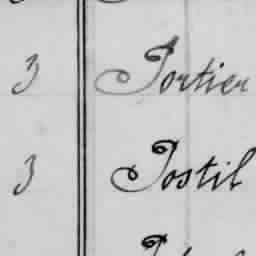 3 Portier
3 Postil